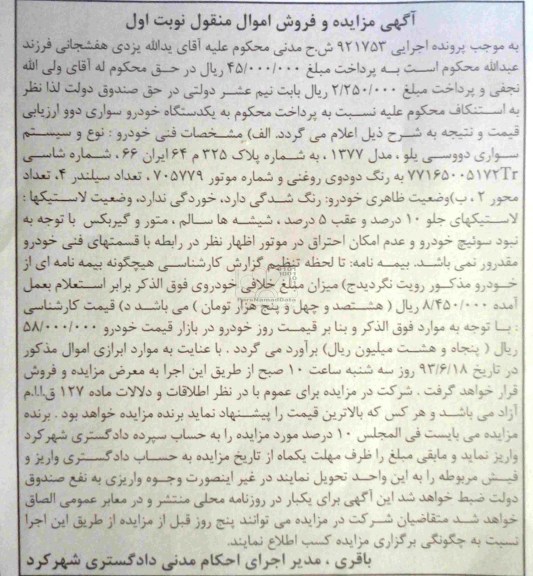 آگهی مزایده و فروش اموال منقول نوبت اول
به موجب پرونده اجرایی ۹۲۱۷۵۳ ش.ح مدنی محکوم علیه آقای یدالله یزدی هفشجانی فرزند
عبدالله محکوم است به پرداخت مبلغ ۴۵/۰۰۰/۰۰۰ ریال در حق محکوم له آقای ولی الله
نجفی و پرداخت مبلغ ۲/۲۵۰/۰۰۰ ریال بابت نیم عشر دولتی در حق صندوق دولت لذا نظر
به استنکاف محکوم علیه نسبت به پرداخت محکوم به یکدستگاه خودرو سواری دوو ارزیابی
قیمت و نتیجه به شرح ذیل اعلام می گردد. الف) مشخصات فنی خودرو : نوع و سیستم
سواری دووسی یلو ، مدل ۱۳۷۷ ، به شماره پلاک ۳۲۵ م ۶۴ ایران ۶۶ ، شماره شاسی
۷۷۱۶۵۰۰۵۱۷۲Tr به رنگ دودوی روغنی و شماره موتور ۷۰۵۷۷۹ ، تعداد سیلندر ۴، تعداد
محور ۲ ، ب)وضعیت ظاهری خودرو: رنگ شدگی دارد، خوردگی ندارد، وضعیت لاستیکها :
لاستیکهای جلو ۱۰ درصد و عقب ۵ درصد ، شیشه ها سالم ، متور و گیربکس با توجه به
نبود سوئیچ خودرو و عدم امکان احتراق در موتور اظهار نظر در رابطه با قسمتهای فنی خودرو
مقدرور نمی باشد. بیمه نامه: تا لحظه تنظیم گزارش کارشناسی هیچگونه بیمه نامه ای از
خودرو مذکور رویت نگردیدج) میزان مبلغ خلافی خودروی فوق الذکر برابر استعلام بعمل
آمده ۸/۴۵۰/۰۰۰ ریال ( هشتصد و چهل و پنج هزار تومان ) می باشد د) قیمت کارشناسی
: با توجه به موارد فوق الذکر و بنا بر قیمت روز خودرو در بازار قیمت خودرو ۵۸/۰۰۰/۰۰۰
ریال ( پنجاه و هشت میلیون ریال) برآورد می گردد . با عنایت به موارد ابرازی اموال مذکور
در تاریخ ۹۳/۶/۱۸ روز سه شنبه ساعت ۱۰ صبح از طریق این اجرا به معرض مزایده و فروش
قرار خواهد گرفت . شرکت در مزایده برای عموم با در نظر اطلاقات و دلالات ماده ۱۲۷ ق.ا.ا.م
آزاد می باشد و هر کس که بالاترین قیمت را پیشنهاد نماید برنده مزایده خواهد بود . برنده
مزایده می بایست فی المجلس ۱۰ درصد مورد مزایده را به حساب سپرده دادگستری شهرکرد
واریز نماید و مابقی مبلغ را ظرف مهلت یکماه از تاریخ مزایده به حساب دادگستری واریز و
فیش مربوطه را به این واحد تحویل نمایند در غیر اینصورت وجوه واریزی به نفع صندوق
دولت ضبط خواهد شد این آگهی برای یکبار در روزنامه محلی منتشر و در معابر عمومی الصاق
خواهد شد متقاضیان شرکت در مزایده می توانند پنج روز قبل از مزایده از طریق این اجرا
نسبت به چگونگی برگزاری مزایده کسب اطلاع نمایند.
باقری ، مدیر اجرای احکام مدنی دادگستری شهرکرد